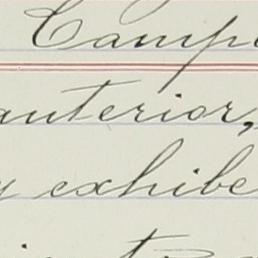 Camp
anterior,
y exhibe